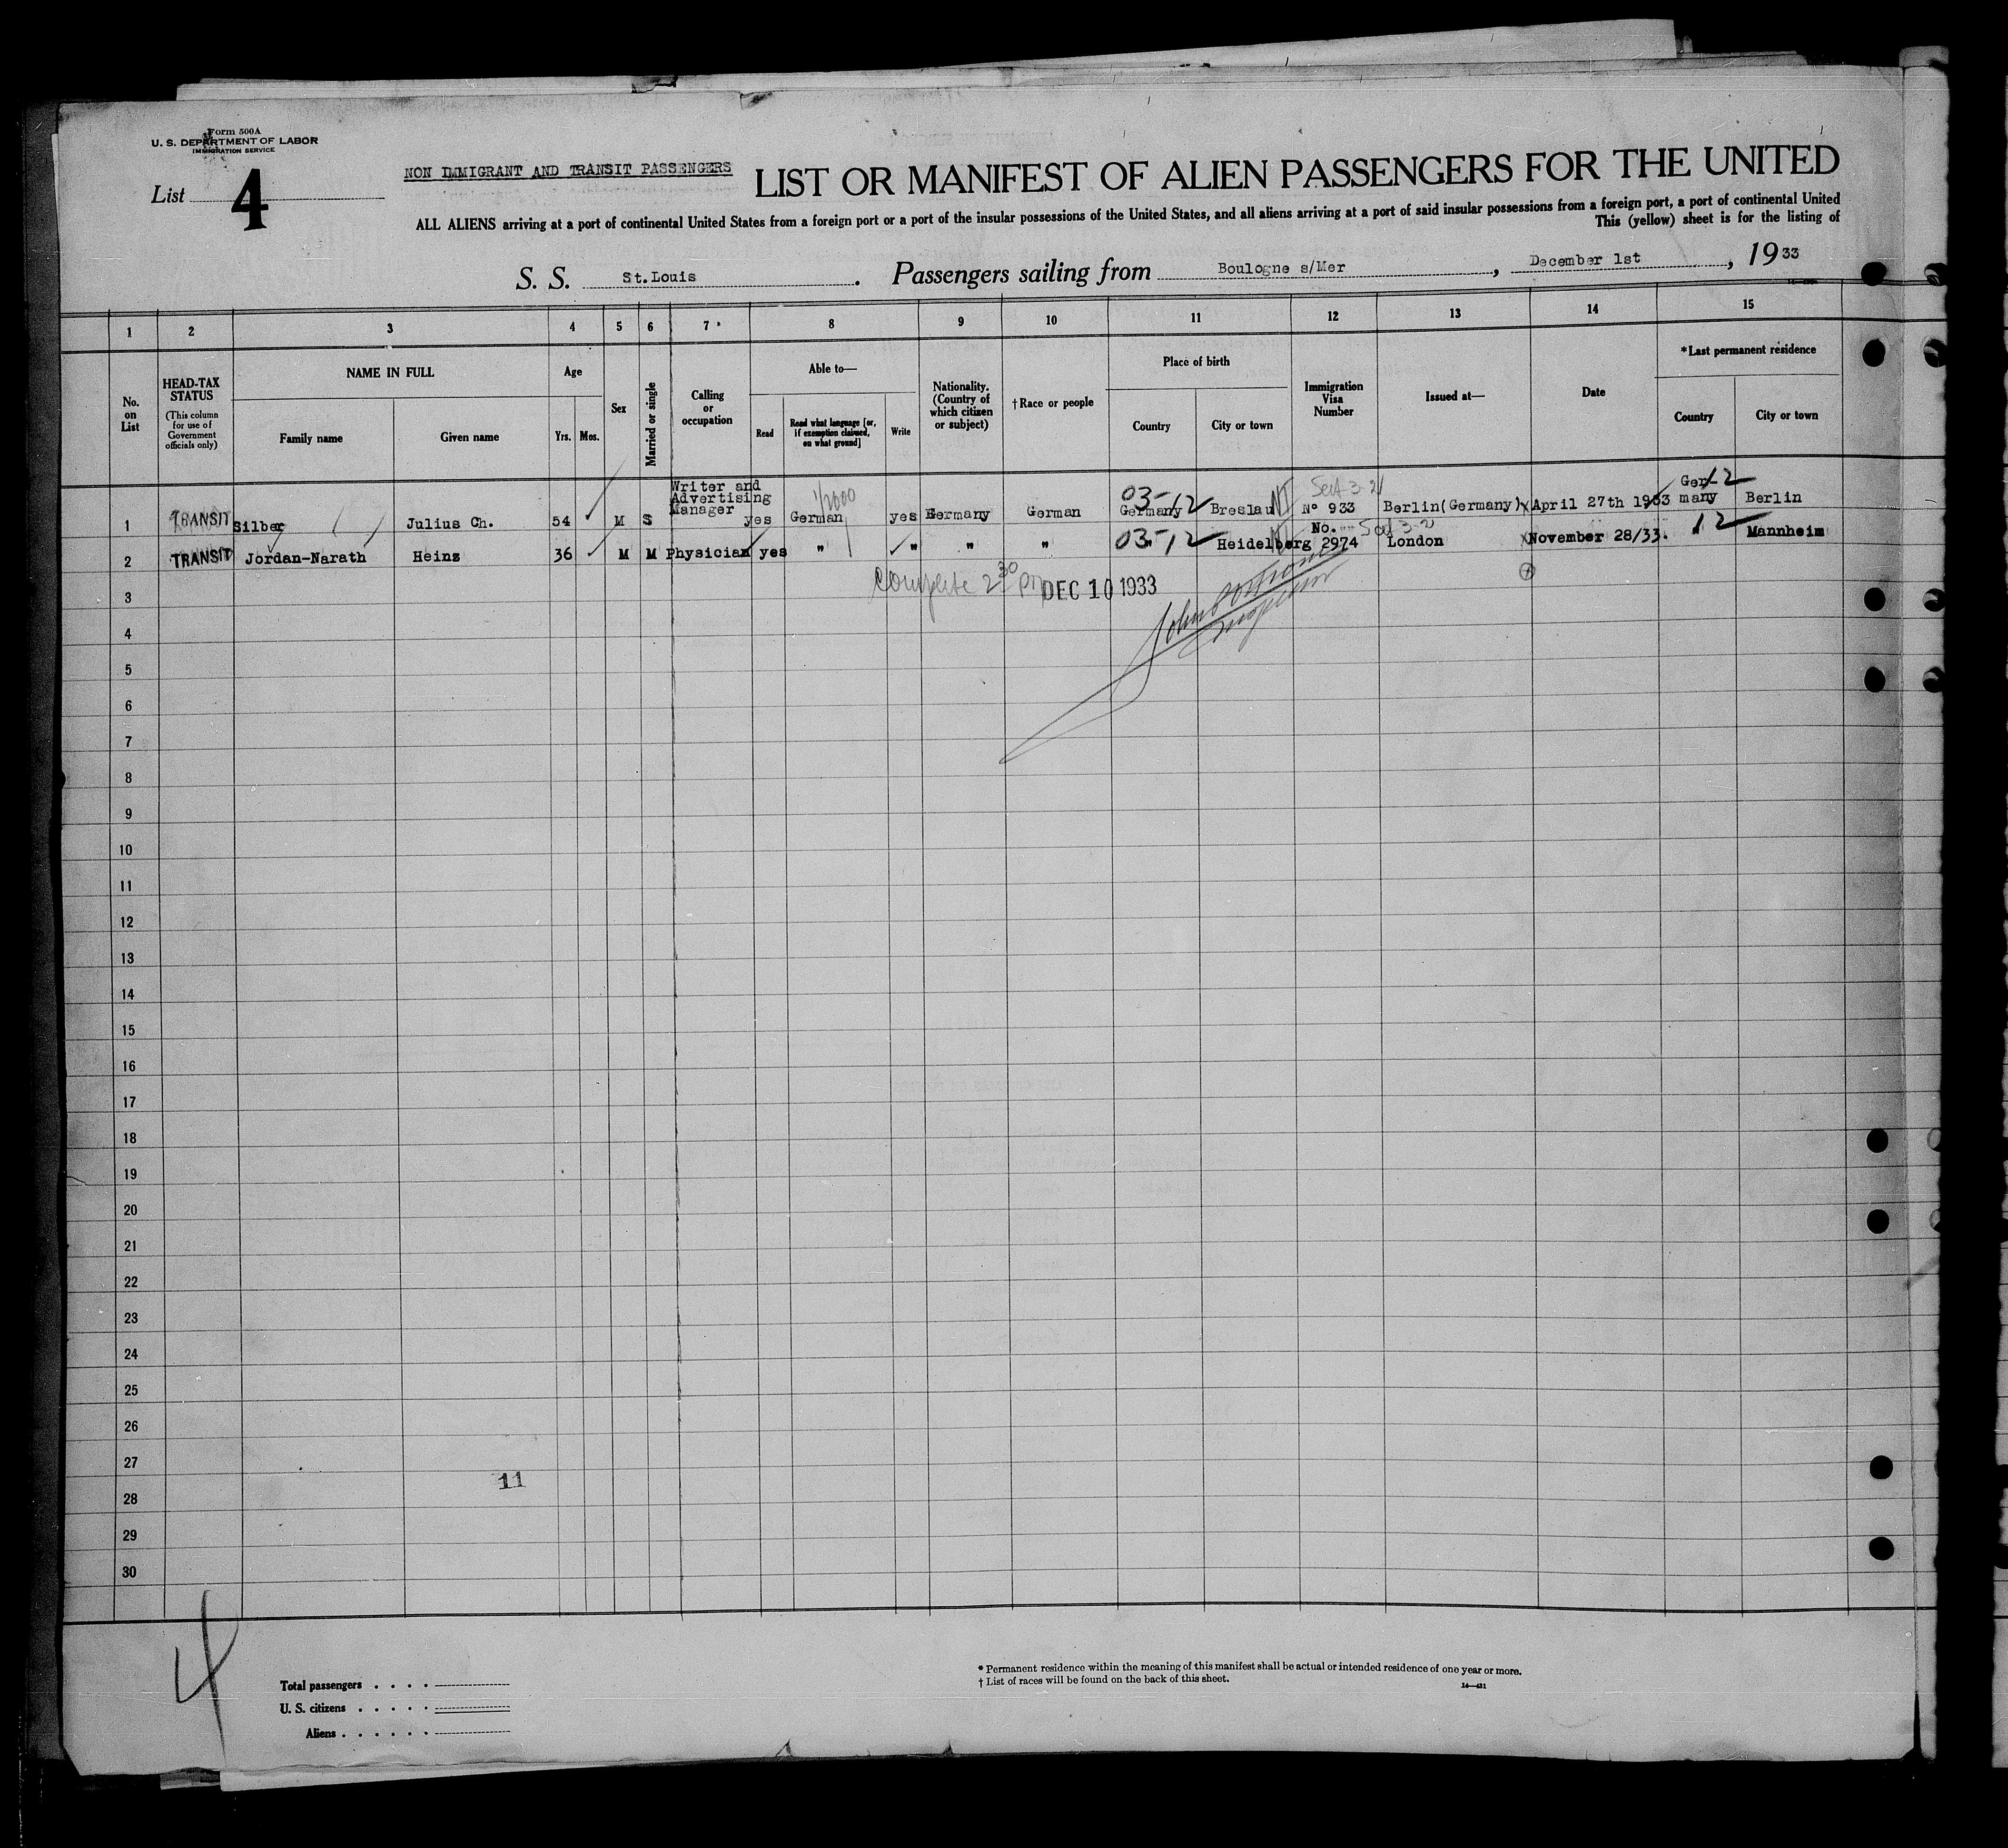 Form 500A
U. S. DEPARTMENT OF LABOR
IMMIGRATION SERVICE
List 4
NON IMMIGRANT AND TRANSIT PASSENGERS
LIST OR MANIFEST OF ALIEN PASSENGERS FOR THE UNITED
ALL ALIENS arriving at a port of continental United States from a foreign port or a port of the insular possessions of the United States, and all aliens arriving at a port of said insular possessions from a foreign port, a port of continental United
This (yellow) sheet is for the listing of
S. S. St.Louis. Passengers sailing from Boulogne s/Mer, December 1st, 1933
1 2 3 4 5 6 7 8 9 10 11 12 13 14 15
No. on List
HEAD-TAX STATUS
(This column for use of Government officials only)
NAME IN FULL
Family name
Given name
Age
Yrs.
Mos.
Sex
Married or single
Calling or occupation
Able to—
Read
Read what language [or, if exemption claimed, on what ground]
Write
Nationality. (Country of which citizen or subject)
†Race or people
Place of birth
Country
City or town
Immigration Visa Number
Issued at—
Date
*Last permanent residence
Country
City or town
1 TRANSIT Silber Julius Ch. 54 M S Writer and Advertising Manager yes German yes Germany German 03-12 Germany Breslau Nº 933 Berlin(Germany) April 27th 1933 Germany 12 Berlin
2 TRANSIT Jordan-Narath Heinz 36 M M Physician yes " " " " 03-12 " Heidelberg No. 2974 London November 28/33. 12 Mannheim
Complete 2 30 pm DEC 10 1933
3
4
5
6
7
8
9
10
11
12
13
14
15
16
17
18
19
20
21
22
23
24
25
26
27
11
28
29
30
4
Total passengers . . . .
U. S. citizens . . . . .
Aliens . . . . . .
* Permanent residence within the meaning of this manifest shall be actual or intended residence of one year or more.
† List of races will be found on the back of this sheet.
14—431